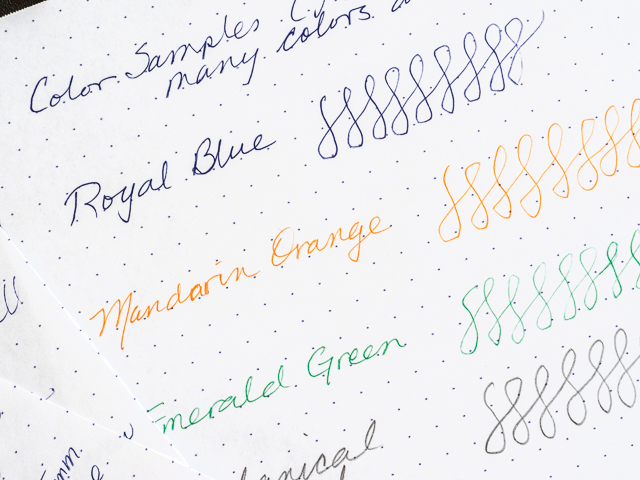 Color Samples
many colors
Royal Blue
Mandarin Orange
Emerald Green